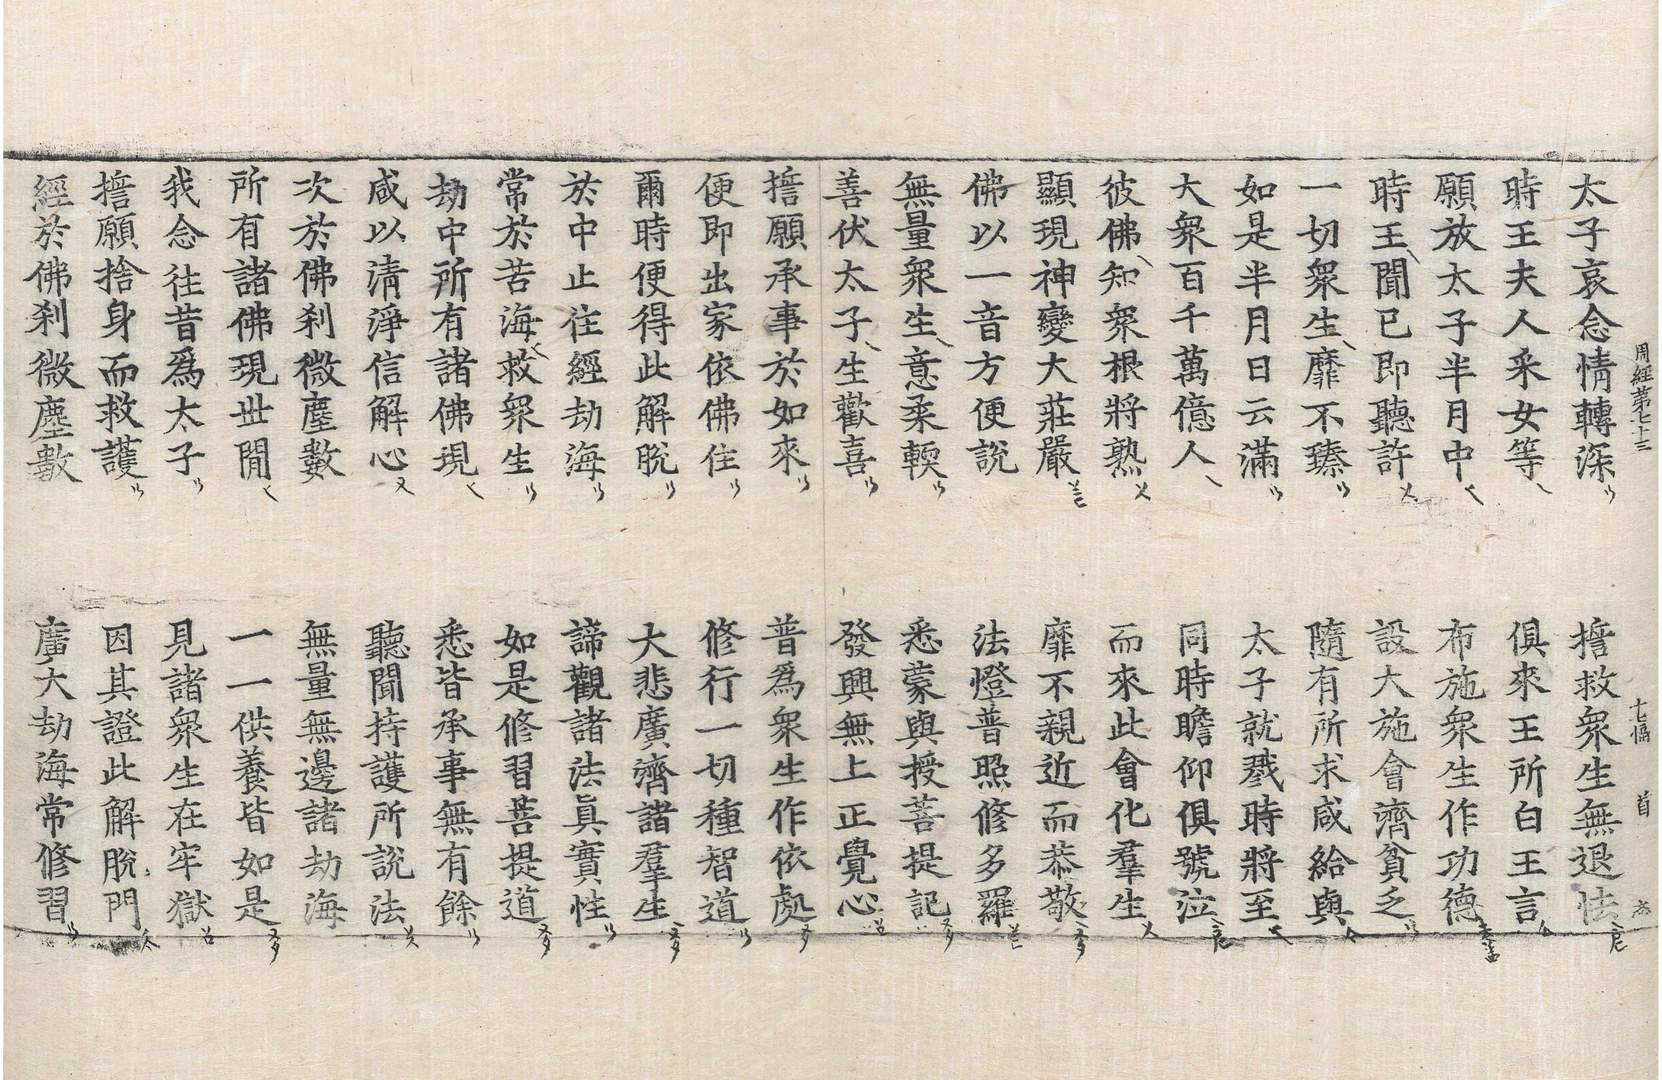 周經第七十三 七幅 首
太子哀念情轉深 擔救衆生無退怯
時王夫人采女等 俱來王所白王言
願放太子半月中 布施衆生作功德
時王聞已即聽許 設大施會濟貧乏
一切衆生靡不臻 隨有所求咸給與
如是半月日云滿 太子就戮時將至
大衆百千萬億人 同時瞻仰俱號泣
彼佛知衆根將熟 而來此會化羣生
顯現神變大莊嚴 靡不親近而恭敬
佛以一音方便說 法燈普照修多羅
無量衆生意柔輭 悉蒙與授菩提記
善伏太子生歡喜 發興無上正覺心
擔願承事於如來 普爲衆生作依處
便即出家依佛住 修行一切種智道
爾時便得此解脫 大悲廣濟諸羣生
於中止住經劫海 諦觀諸法眞實性
常於苦海救衆生 如是修習菩提道
劫中所有諸佛現 悉皆承事無有餘
咸以清淨信解心 聽聞持護所說法
次於佛刹微塵數 無量無邊諸劫海
所有諸佛現世間 一一供養皆如是
我念往昔爲太子 見諸衆生在牢獄
擔願捨身而救護 因其證此解脫門
經於佛刹微塵數 廣大劫海常修習